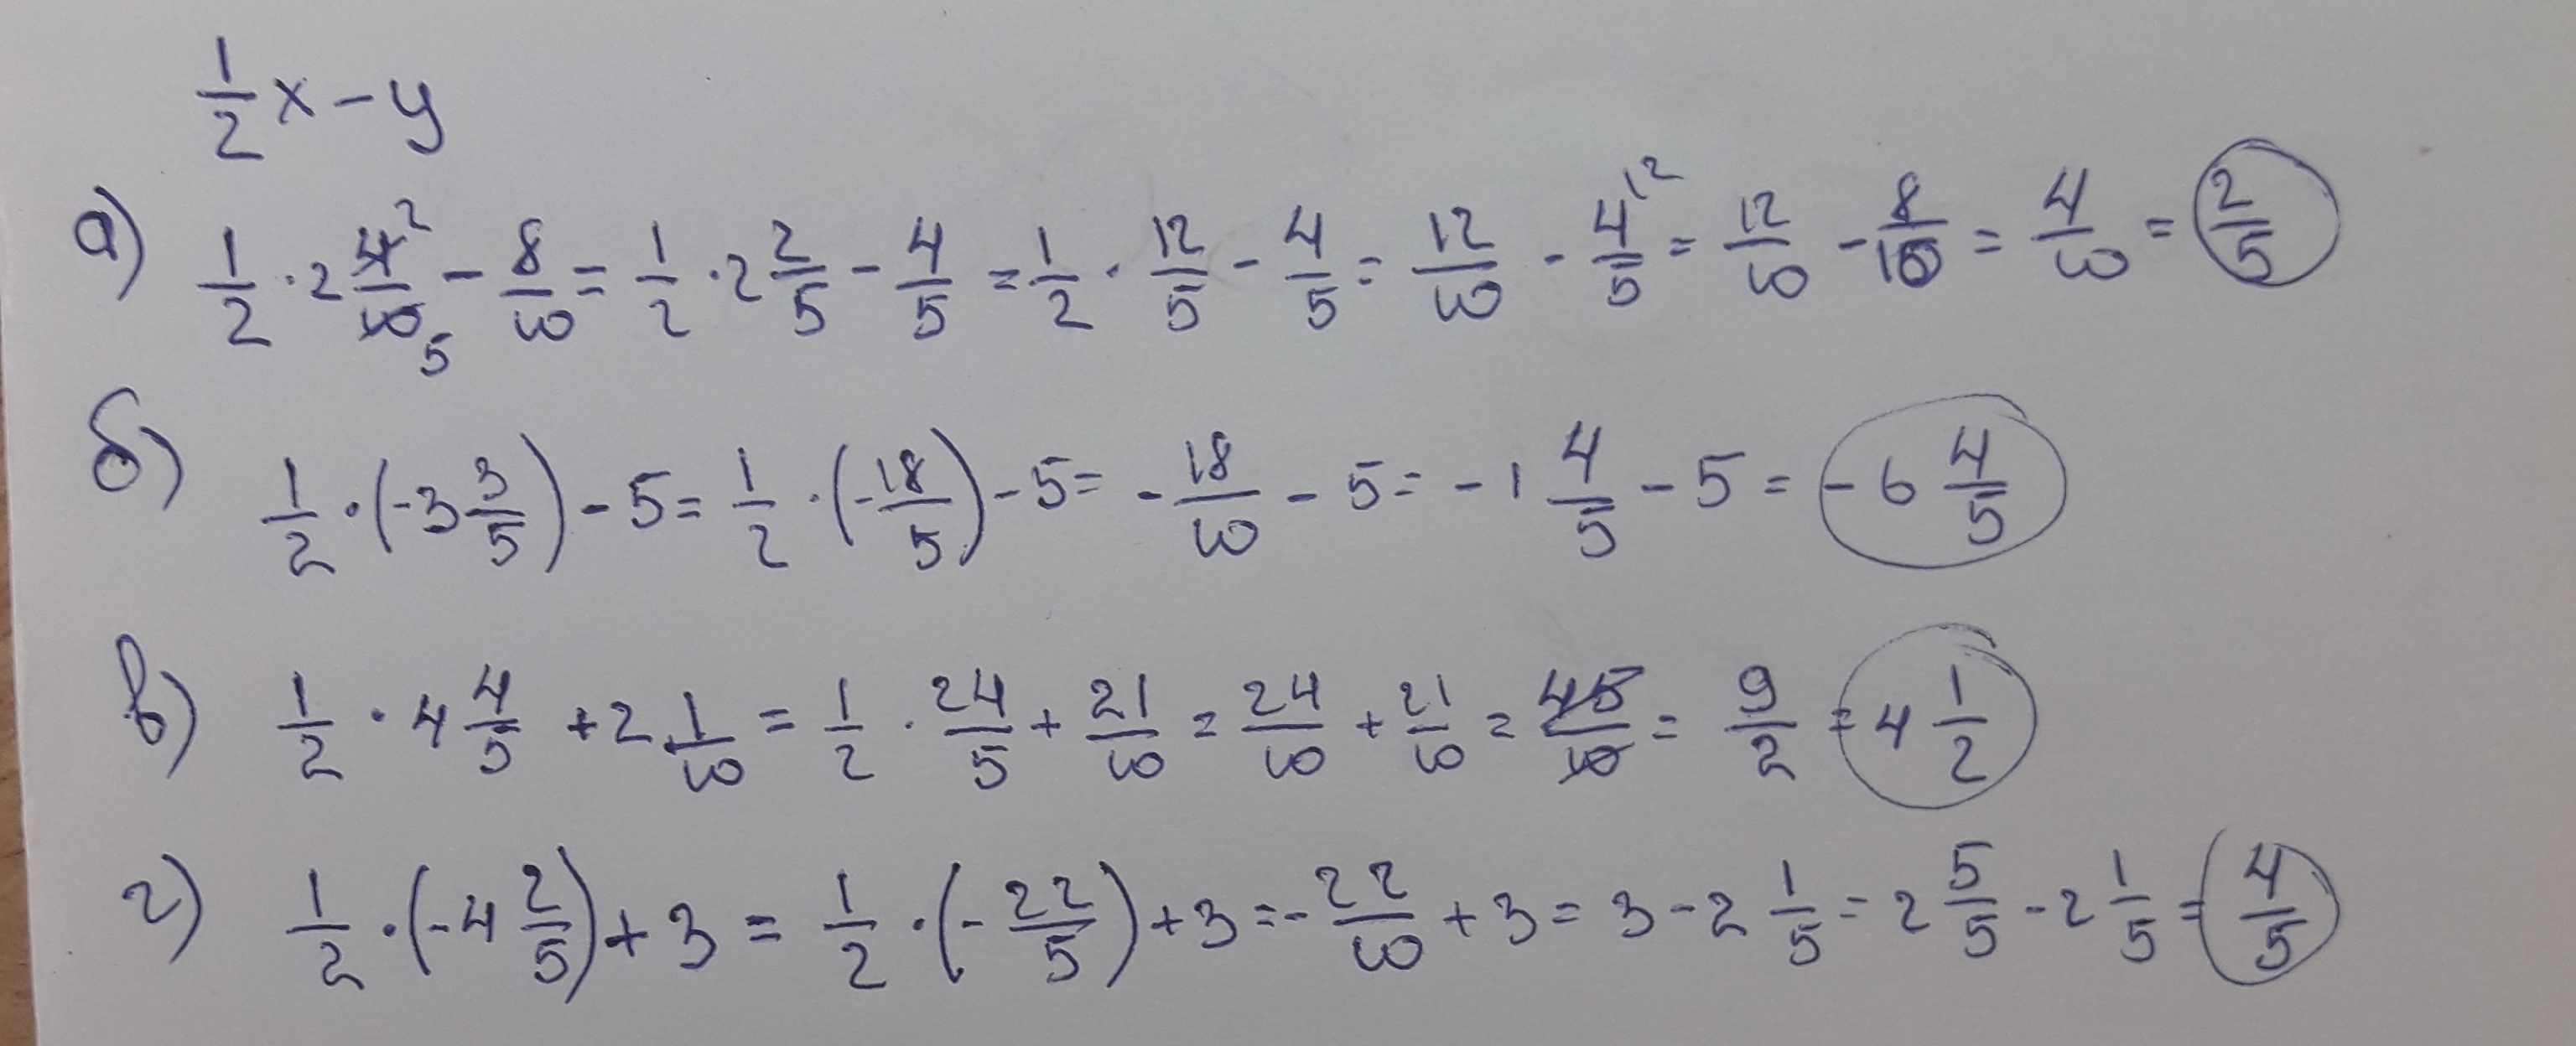 1/2 x - y
а) 1/2 · 2 4²/10₅ - 8/10 = 1/2 · 2 2/5 - 4/5 = 1/2 · 12/5 - 4/5 = 12/10 - 4^12/5 = 12/10 - 8/10 = 4/10 = 2/5
б) 1/2 · (-3 3/5) - 5 = 1/2 · (-18/5) - 5 = -18/10 - 5 = -1 4/5 - 5 = -6 4/5
в) 1/2 · 4 4/5 + 2 1/10 = 1/2 · 24/5 + 21/10 = 24/10 + 21/10 = 45/10 = 9/2 = 4 1/2
г) 1/2 · (-4 2/5) + 3 = 1/2 · (-22/5) + 3 = -22/10 + 3 = 3 - 2 1/5 = 2 5/5 - 2 1/5 = 4/5